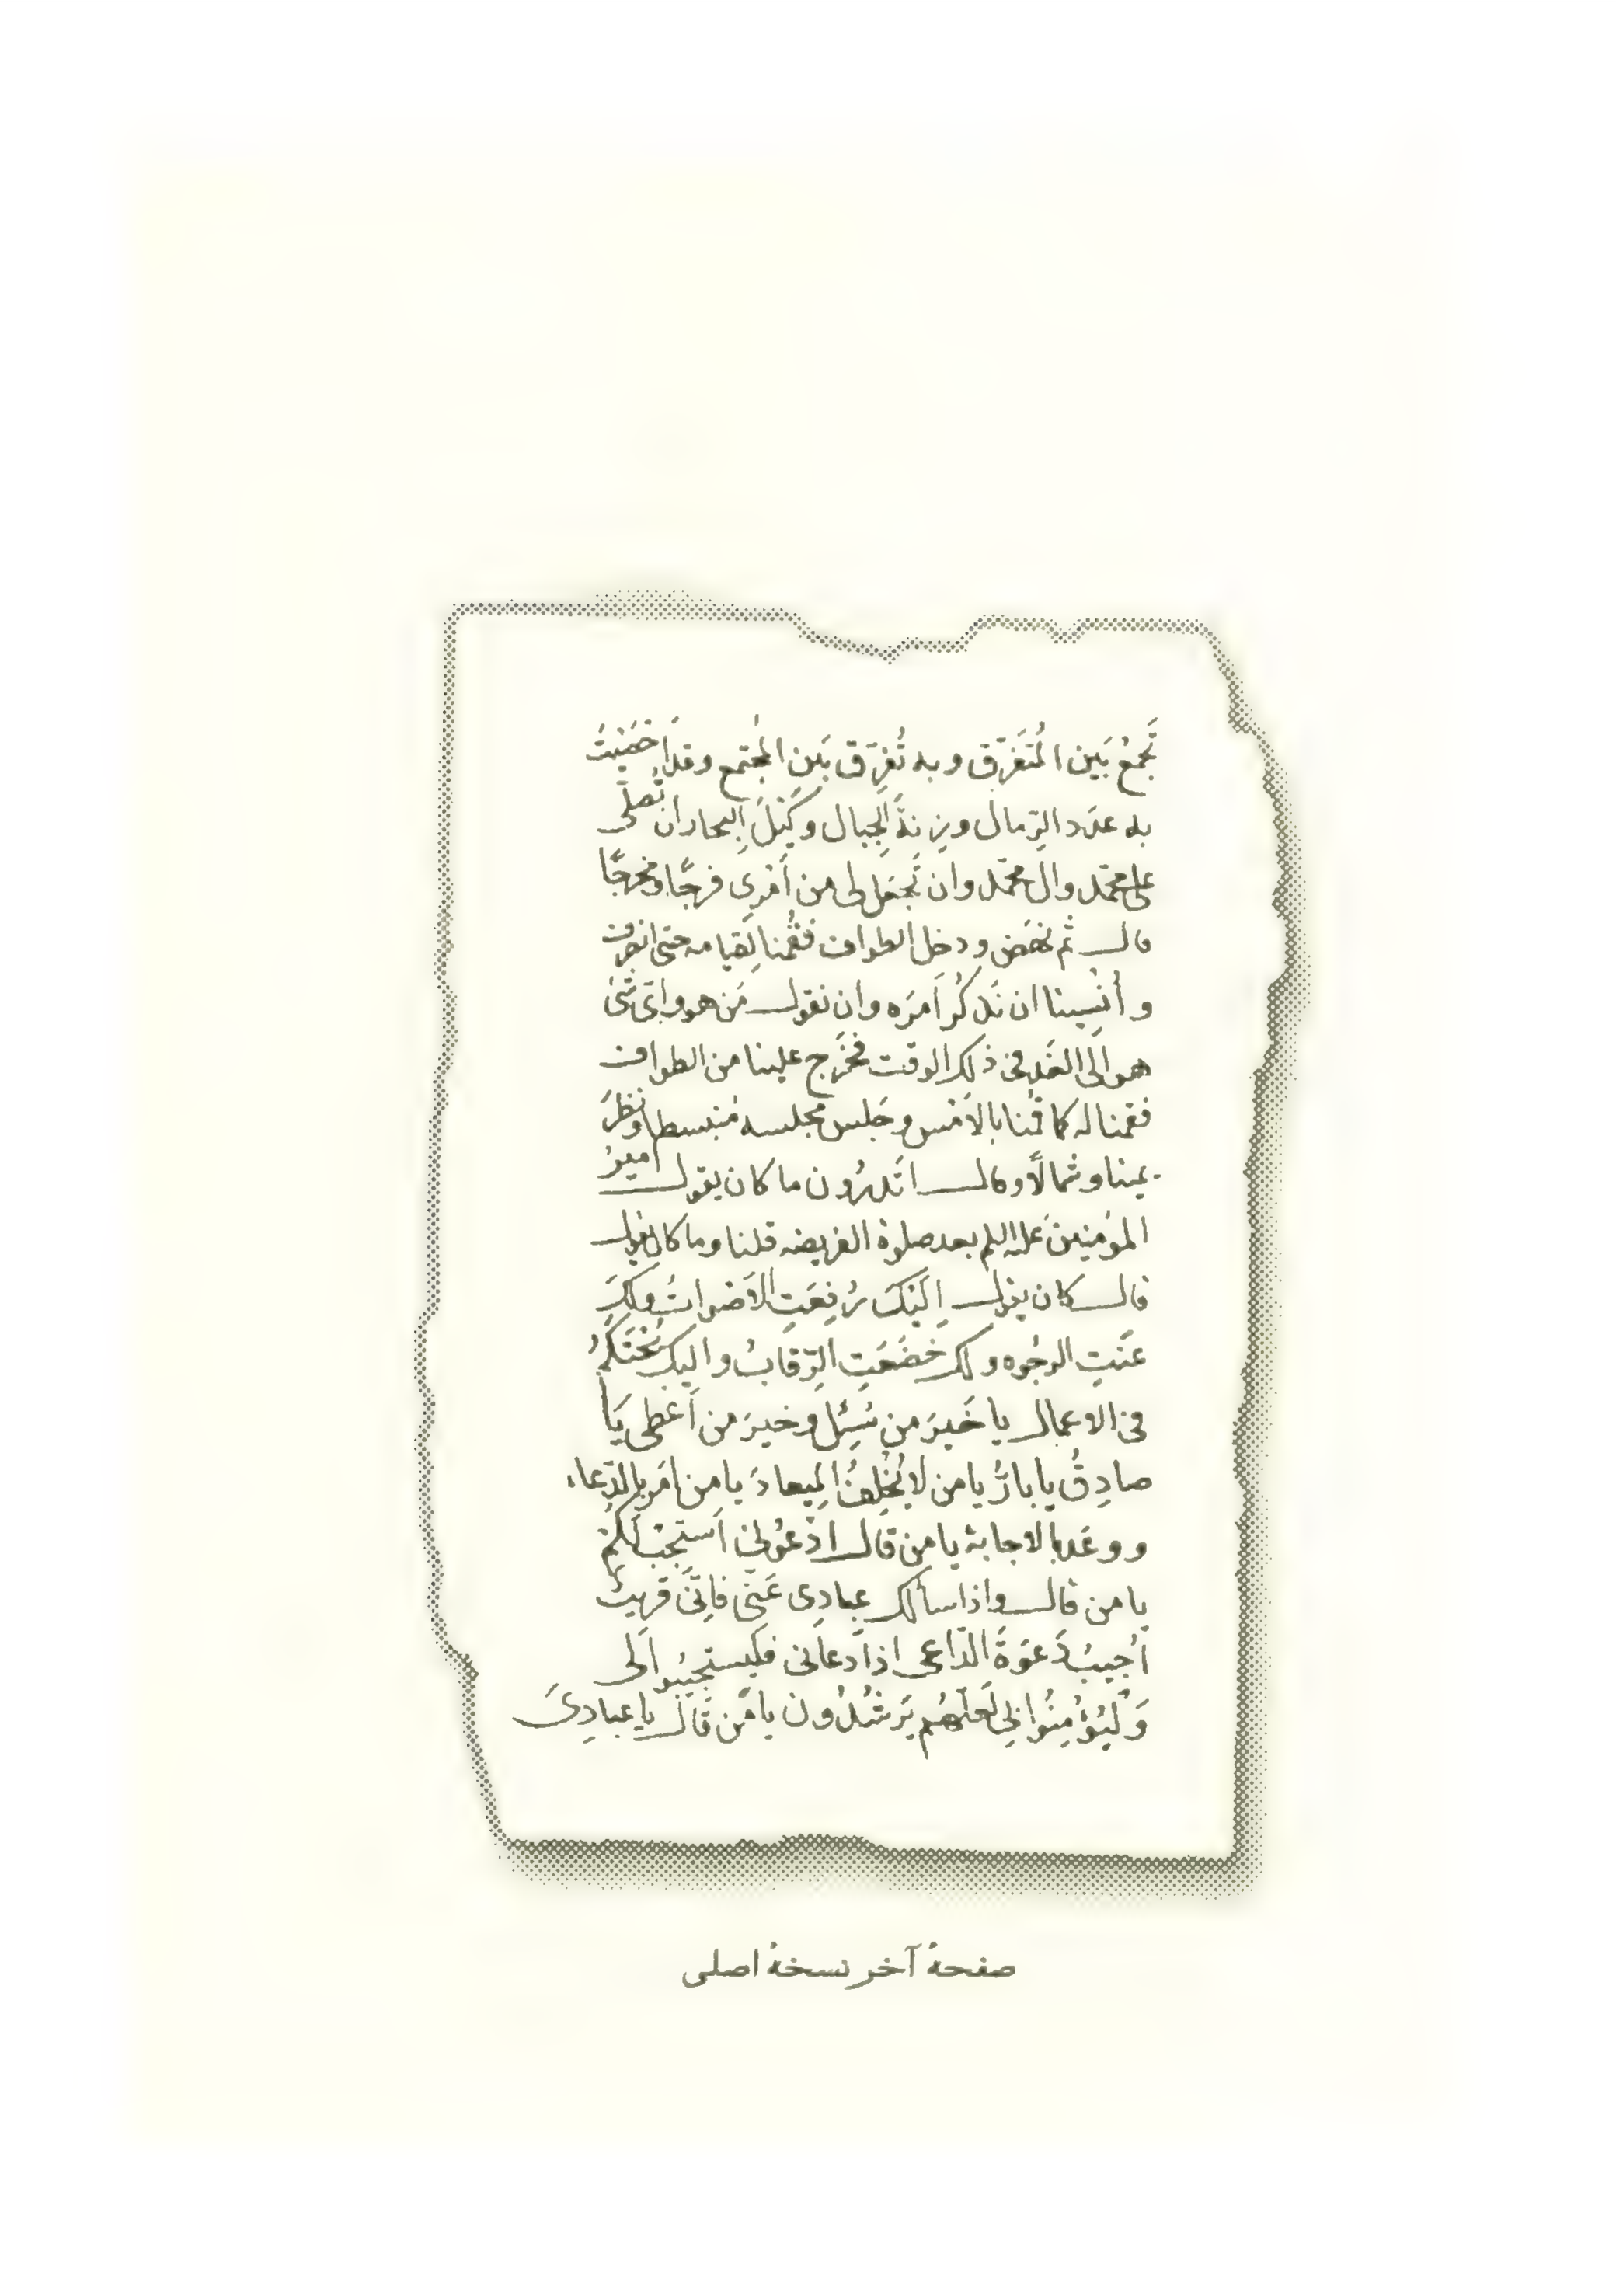 تَجمعُ بَين المُتَفَرّق و به تُفرّق بَين المجتمع وقد اَحْصَيْتَ
به عدَد الرّمال وزِنةَ الجبال وكَيْلَ البحار ان تُصلّى
على محمّد وال محمّد وان تَجعَل لى من اَمْرى فرجًا ومخرجًا
قال ثم نهَض ودخل الطواف فقُمنا لقيامه حتى انصرف
و أُنْسِينا ان نَذكُر اَمرَه وان نقول مَن هو واىّ شَىْ
هو الَى الغَد فى ذلك الوقت فخَرَج علينا من الطواف
فقمنا له كما قُمنا بالاَمْس وجَلس مجلسه مُنبسطا ونظرَ
يمينا وشمالًا وقال اتَدرُون ما كان يقول امير
المؤمنينَ عليه السلم بعد صلوة الفريضه قلنا وما كان يقول
قال كان يقول اِلَيْكَ رُفِعَتِ الاَصْواتُ ولكَ
عَنَتِ الوجُوه ولك خضَعَتِ الرّقابُ واليك تحْتَكمُ
فى الاعمال يا خَيرَ من سُئِل وخيرَ من اَعْطى يَا
صادِقُ يا بارُّ يا من لا يُخْلِفُ الميعادَ يا من امَر بالدّعاء
ووعَد بالاجابة يا من قال ادْعُونى اَستَجِبْ لَكُمْ
يا من قال واذا سألك عِبادى عَنّى فاِنّى قريبٌ
اُجيبُ دَعوَةَ الدّاعى اذا دَعانى فليستجيبُوا لى
وَلْيُؤمِنُوا بى لَعلّهُم يَرشُدُون يا مَن قَال يا عبادِىَ
صفحهٔ آخر نسخهٔ اصلی